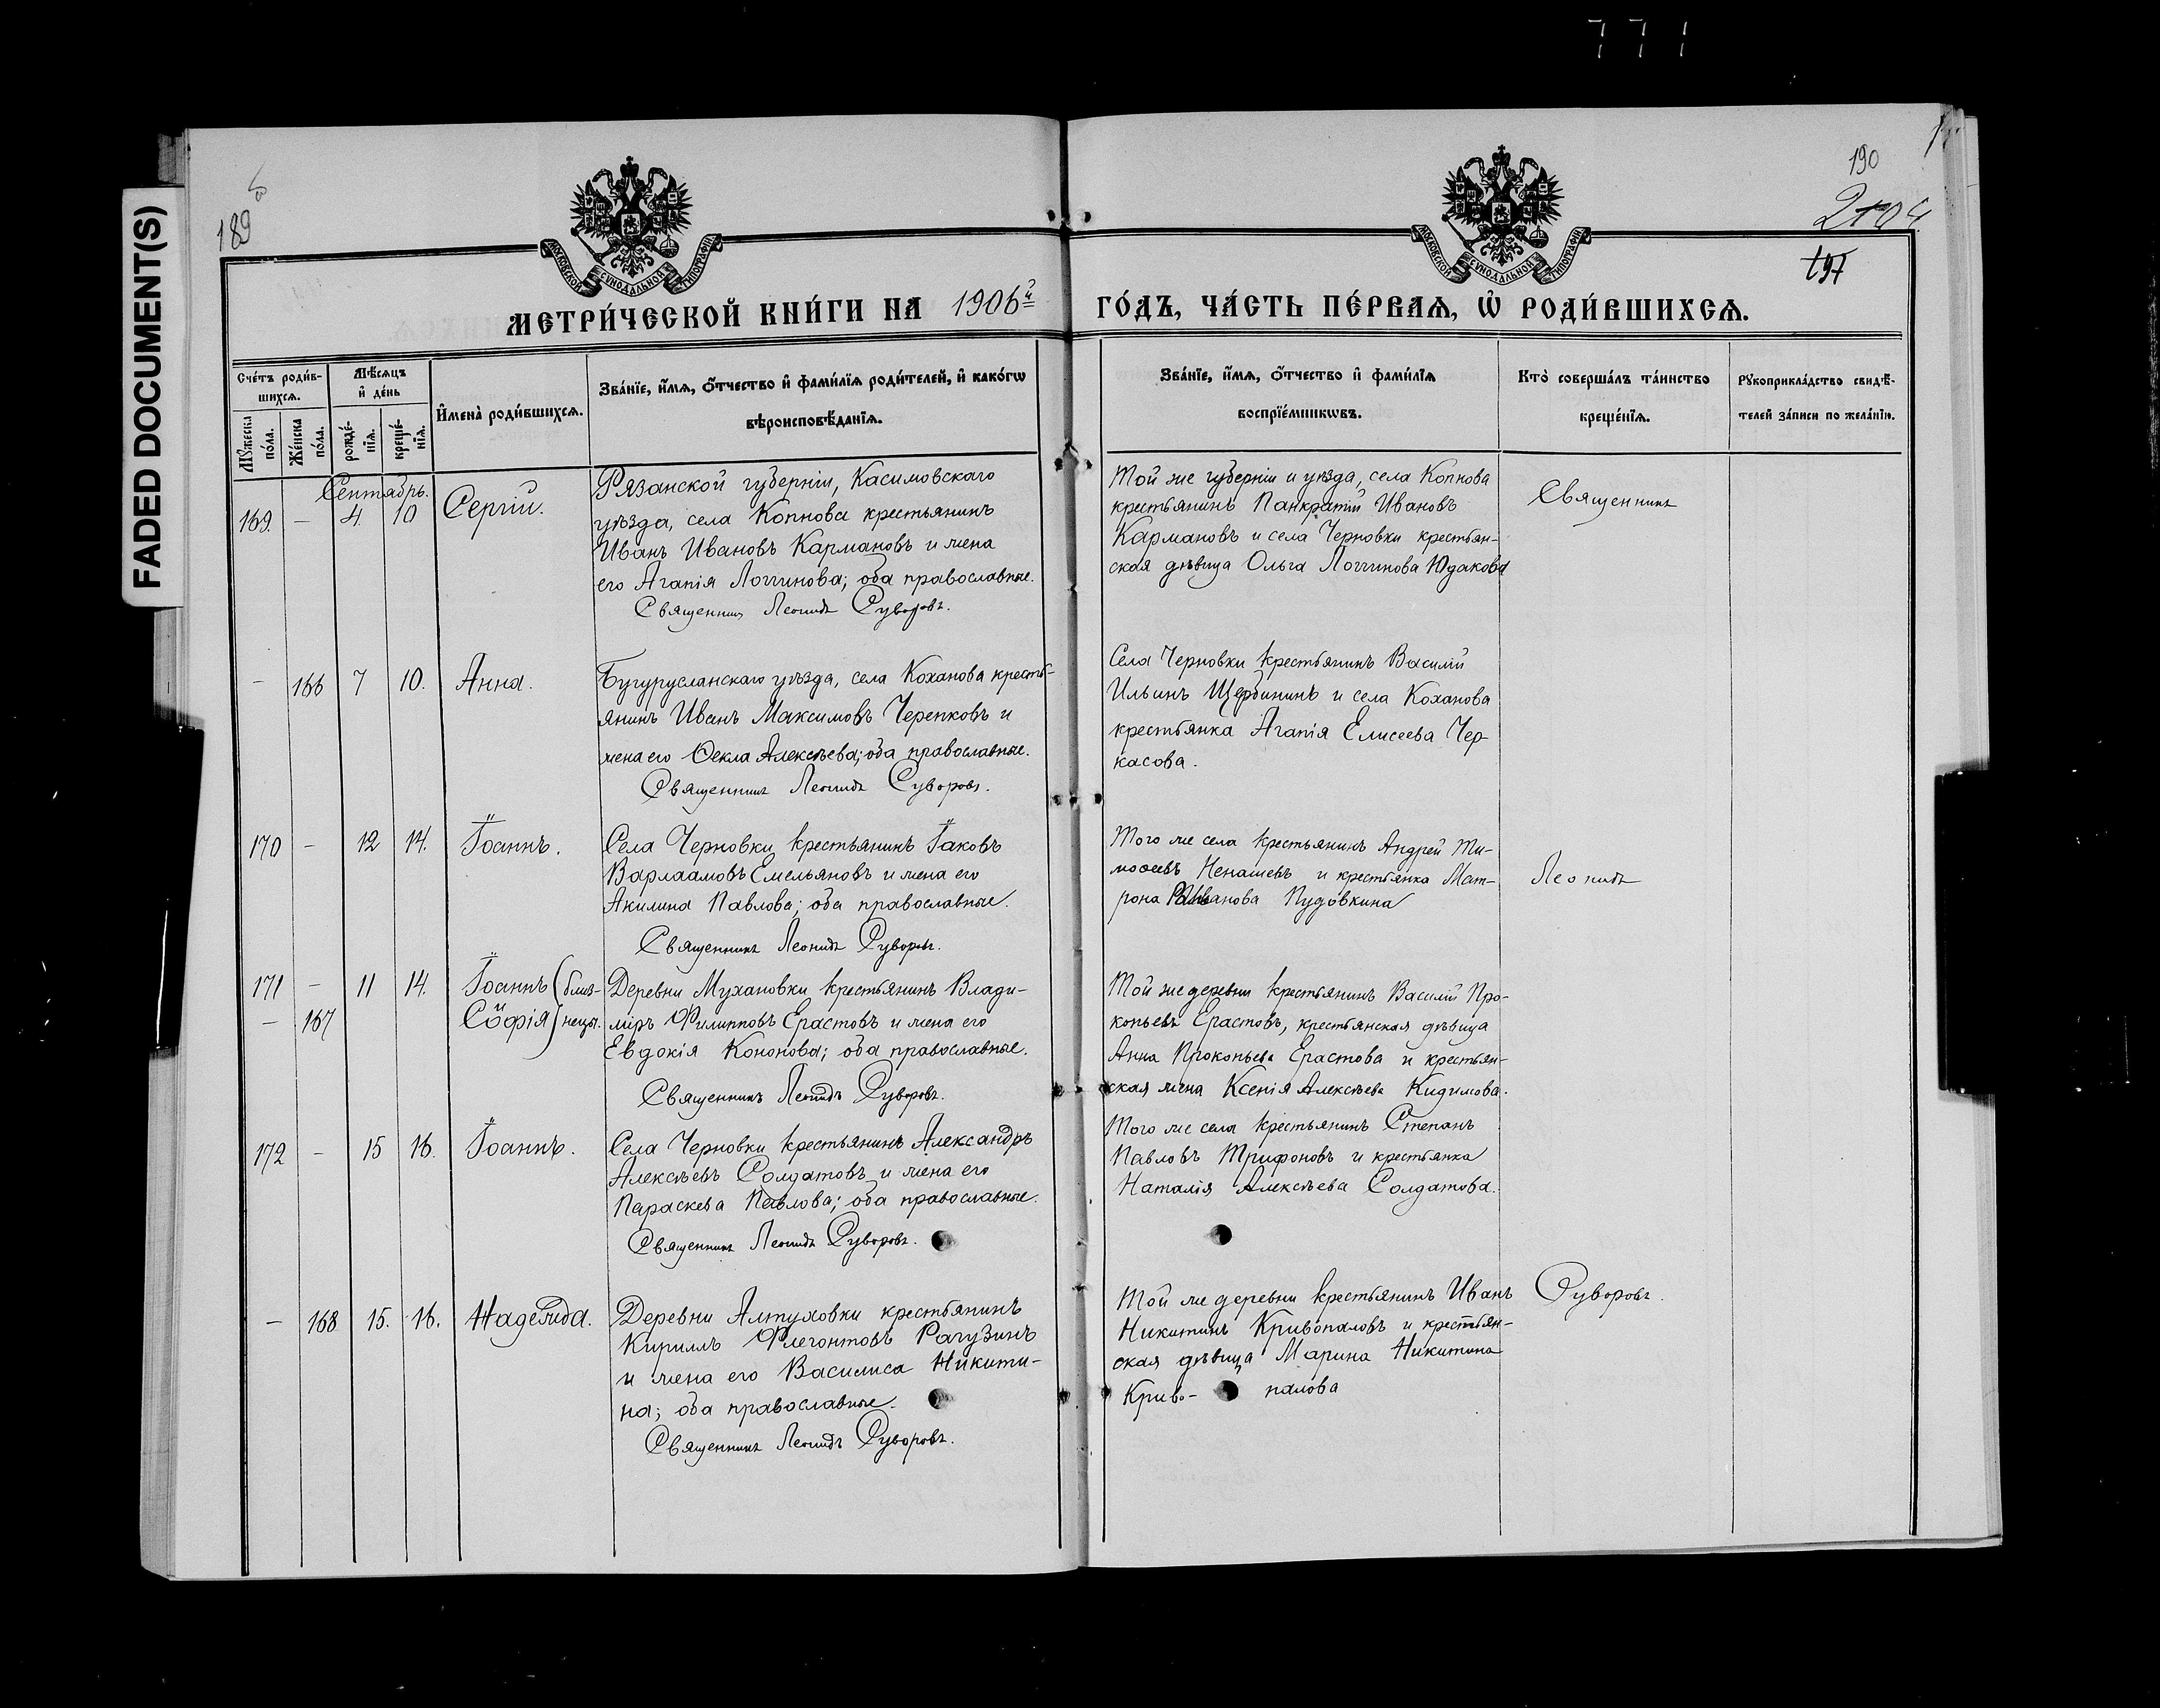 771
FADED DOCUMENT(S)
189
190
2104
197
МОСКОВСКОЙ СѴНОДАЛЬНОЙ ТИПОГРАФІИ
МОСКОВСКОЙ СѴНОДАЛЬНОЙ ТИПОГРАФІИ
МЕТРИ́ЧЕСКОЙ КНИ́ГИ НА 1906й ГО́ДЪ, ЧА́СТЬ ПЕ́РВАѦ, Ѡ҆ РОДИ́ВШИХСѦ.
Сче́тъ роди́в-
шихсѧ.
Мꙋ́жеска по́ла.
Же́нска по́ла.
Мѣ́сѧцъ
и҆ де́нь
рожде́-нїѧ.
креще́-нїѧ.
И҆мена̀ роди́вшихсѧ.
Зва́нїе, и҆́мѧ, ѻ҆́тчество и҆ фами́лїѧ роди́телей, и҆ како́гѡ
вѣроисповѣ́данїѧ.
Зва́нїе, и҆́мѧ, ѻ҆́тчество и҆ фами́лїѧ
воспрїе́мникѡвъ.
Кто̀ соверша́лъ та́инство
креще́нїѧ.
Рꙋкоприкла́дство свидѣ́-
телей за́писи по жела́нїю.
Сентябрь.
169. – 4. 10 Сергій.
Рязанской губерніи, Касимовскаго
уѣзда, села Копнова крестьянинъ
Иванъ Ивановъ Кармановъ и жена
его Агапія Логгинова; оба православные.
Священникъ Леонидъ Суворовъ.
Той же губерніи и уѣзда, села Копнова
крестьянинъ Панкратій Ивановъ
Кармановъ и села Черновки крестьян-
ская дѣвица Ольга Логгинова Юдакова
Священникъ
– 166 7 10. Анна.
Бугурусланскаго уѣзда, села Коханова кресть-
янинъ Иванъ Максимовъ Черепковъ и
жена его Ѳекла Алексѣева; оба православные.
Священникъ Леонидъ Суворовъ.
Села Черновки крестьянинъ Василій
Ильинъ Щербининъ и села Коханова
крестьянка Агапія Елисеева Чер-
касова.
170 – 12 14. Іоаннъ.
Села Черновки крестьянинъ Іаковъ
Варлаамовъ Емельяновъ и жена его
Акилина Павлова; оба православные.
Священникъ Леонидъ Суворовъ.
Того же села крестьянинъ Андрей Ти-
моѳеевъ Ненашевъ и крестьянка Мат-
рона Иванова Пудовкина
Леонидъ
171 – 11 14. Іоаннъ (близ-
– 167 Софія) нецы.
и
Деревни Мухановки крестьянинъ Влади-
міръ Филипповъ Ерастовъ и жена его
Евдокія Кононова; оба православные.
Священникъ Леонидъ Суворовъ.
Той же деревни крестьянинъ Василій Про-
копьевъ Ерастовъ, крестьянская дѣвица
Анна Прокопьева Ерастова и крестьян-
ская жена Ксенія Алексѣева Кидимова.
172 – 15 16. Іоаннъ.
Села Черновки крестьянинъ Александръ
Алексѣевъ Солдатовъ и жена его
Параскева Павлова; оба православные.
Священникъ Леонидъ Суворовъ.
Того же села крестьянинъ Степанъ
Павловъ Трифоновъ и крестьянка
Наталія Алексѣева Солдатова.
– 168 15. 16. Надежда.
Деревни Алтуховки крестьянинъ
Кириллъ Флегонтовъ Рагузинъ
и жена его Василиса Никити-
на; оба православные.
Священникъ Леонидъ Суворовъ.
Той же деревни крестьянинъ Иванъ
Никитинъ Кривопаловъ и крестьян-
ская дѣвица Марина Никитина
Криво- палова
Суворовъ.